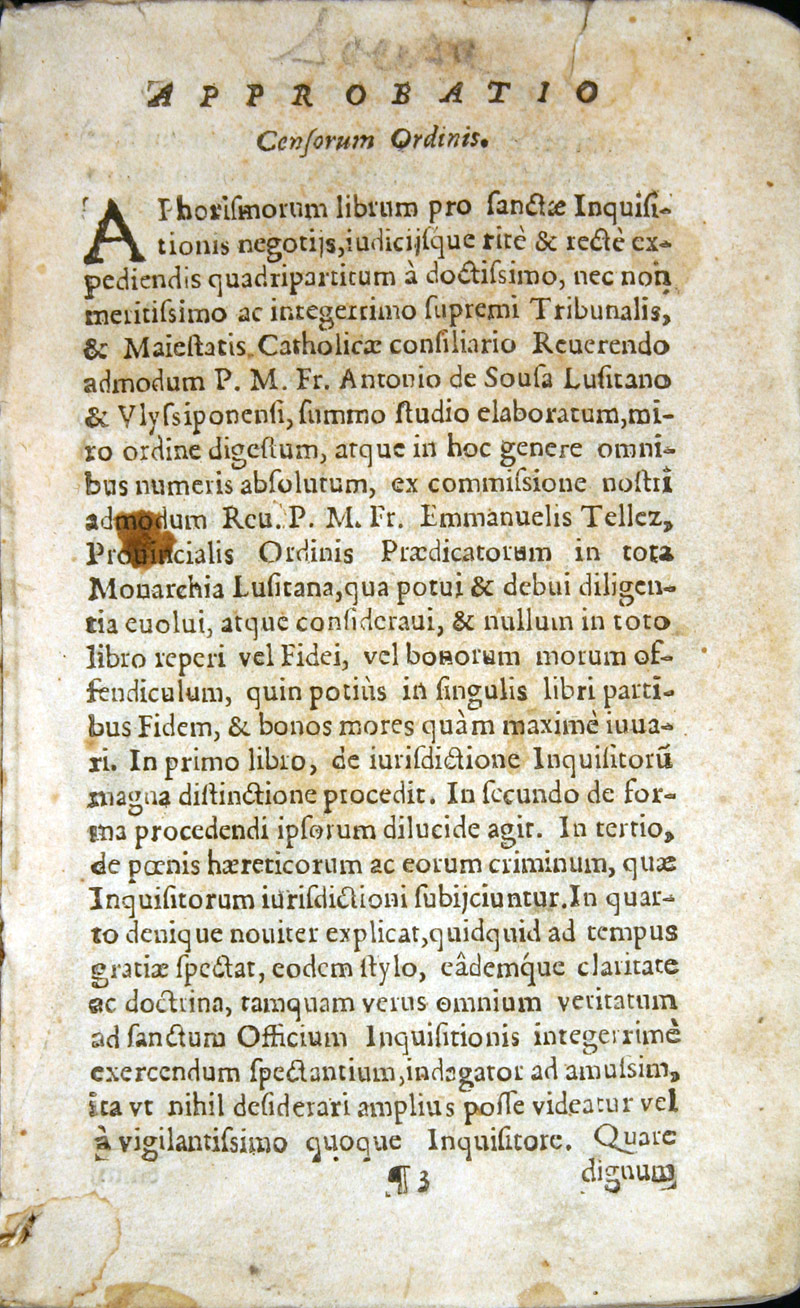 APPROBATIO
Cenſorum Ordinis.
APhoriſmorum librum pro ſanctæ Inquiſi-
tionis negotijs,iudicijſque ritè & rectè ex-
pediendis quadripartitum à doctiſsimo, nec non
meritiſsimo ac integerrimo ſupremi Tribunalis,
& Maieſtatis Catholicæ conſiliario Reuerendo
admodum P. M. Fr. Antonio de Souſa Luſitano
& Vlyſsiponenſi, ſummo ſtudio elaboratum,mi-
ro ordine digeſtum, atque in hoc genere omni-
bus numeris abſolutum, ex commiſsione noſtri
admodum Reu. P. M. Fr. Emmanuelis Tellez,
Prouincialis Ordinis Prædicatorum in tota
Monarchia Luſitana,qua potui & debui diligen-
tia euolui, atque conſideraui, & nullum in toto
libro reperi vel Fidei, vel bonorum morum of-
fendiculum, quin potiùs in ſingulis libri parti-
bus Fidem, & bonos mores quàm maximè iuua-
ri. In primo libro, de iuriſdictione Inquiſitorũ
magna diſtinctione procedit. In ſecundo de for-
ma procedendi ipſorum dilucide agit. In tertio,
de pœnis hæreticorum ac eorum criminum, quæ
Inquiſitorum iuriſdictioni ſubijciuntur.In quar-
to denique nouiter explicat,quidquid ad tempus
gratiæ ſpectat, eodem ſtylo, eâdemq́ue claritate
ac doctrina, tamquam verus omnium veritatum
ad ſanctum Officium Inquiſitionis integerrimè
exercendum ſpectantium,indagator ad amuſsim,
ita vt nihil deſiderari amplius poſſe videatur vel
à vigilantiſsimo quoque Inquiſitore. Quare
¶ 3 dignum